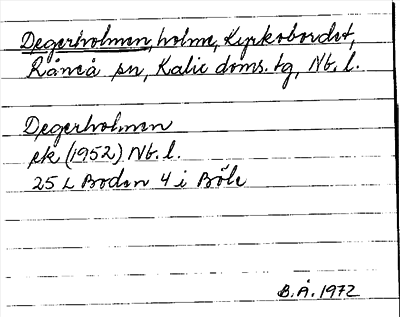 Degerholmen, holme, Kyrkobordet,
Råneå sn, Kalix doms. tg, Nb. l.
Degerholmen
ek (1952) Nb. l.
25 L Boden 4 i Böle
B.Å. 1972